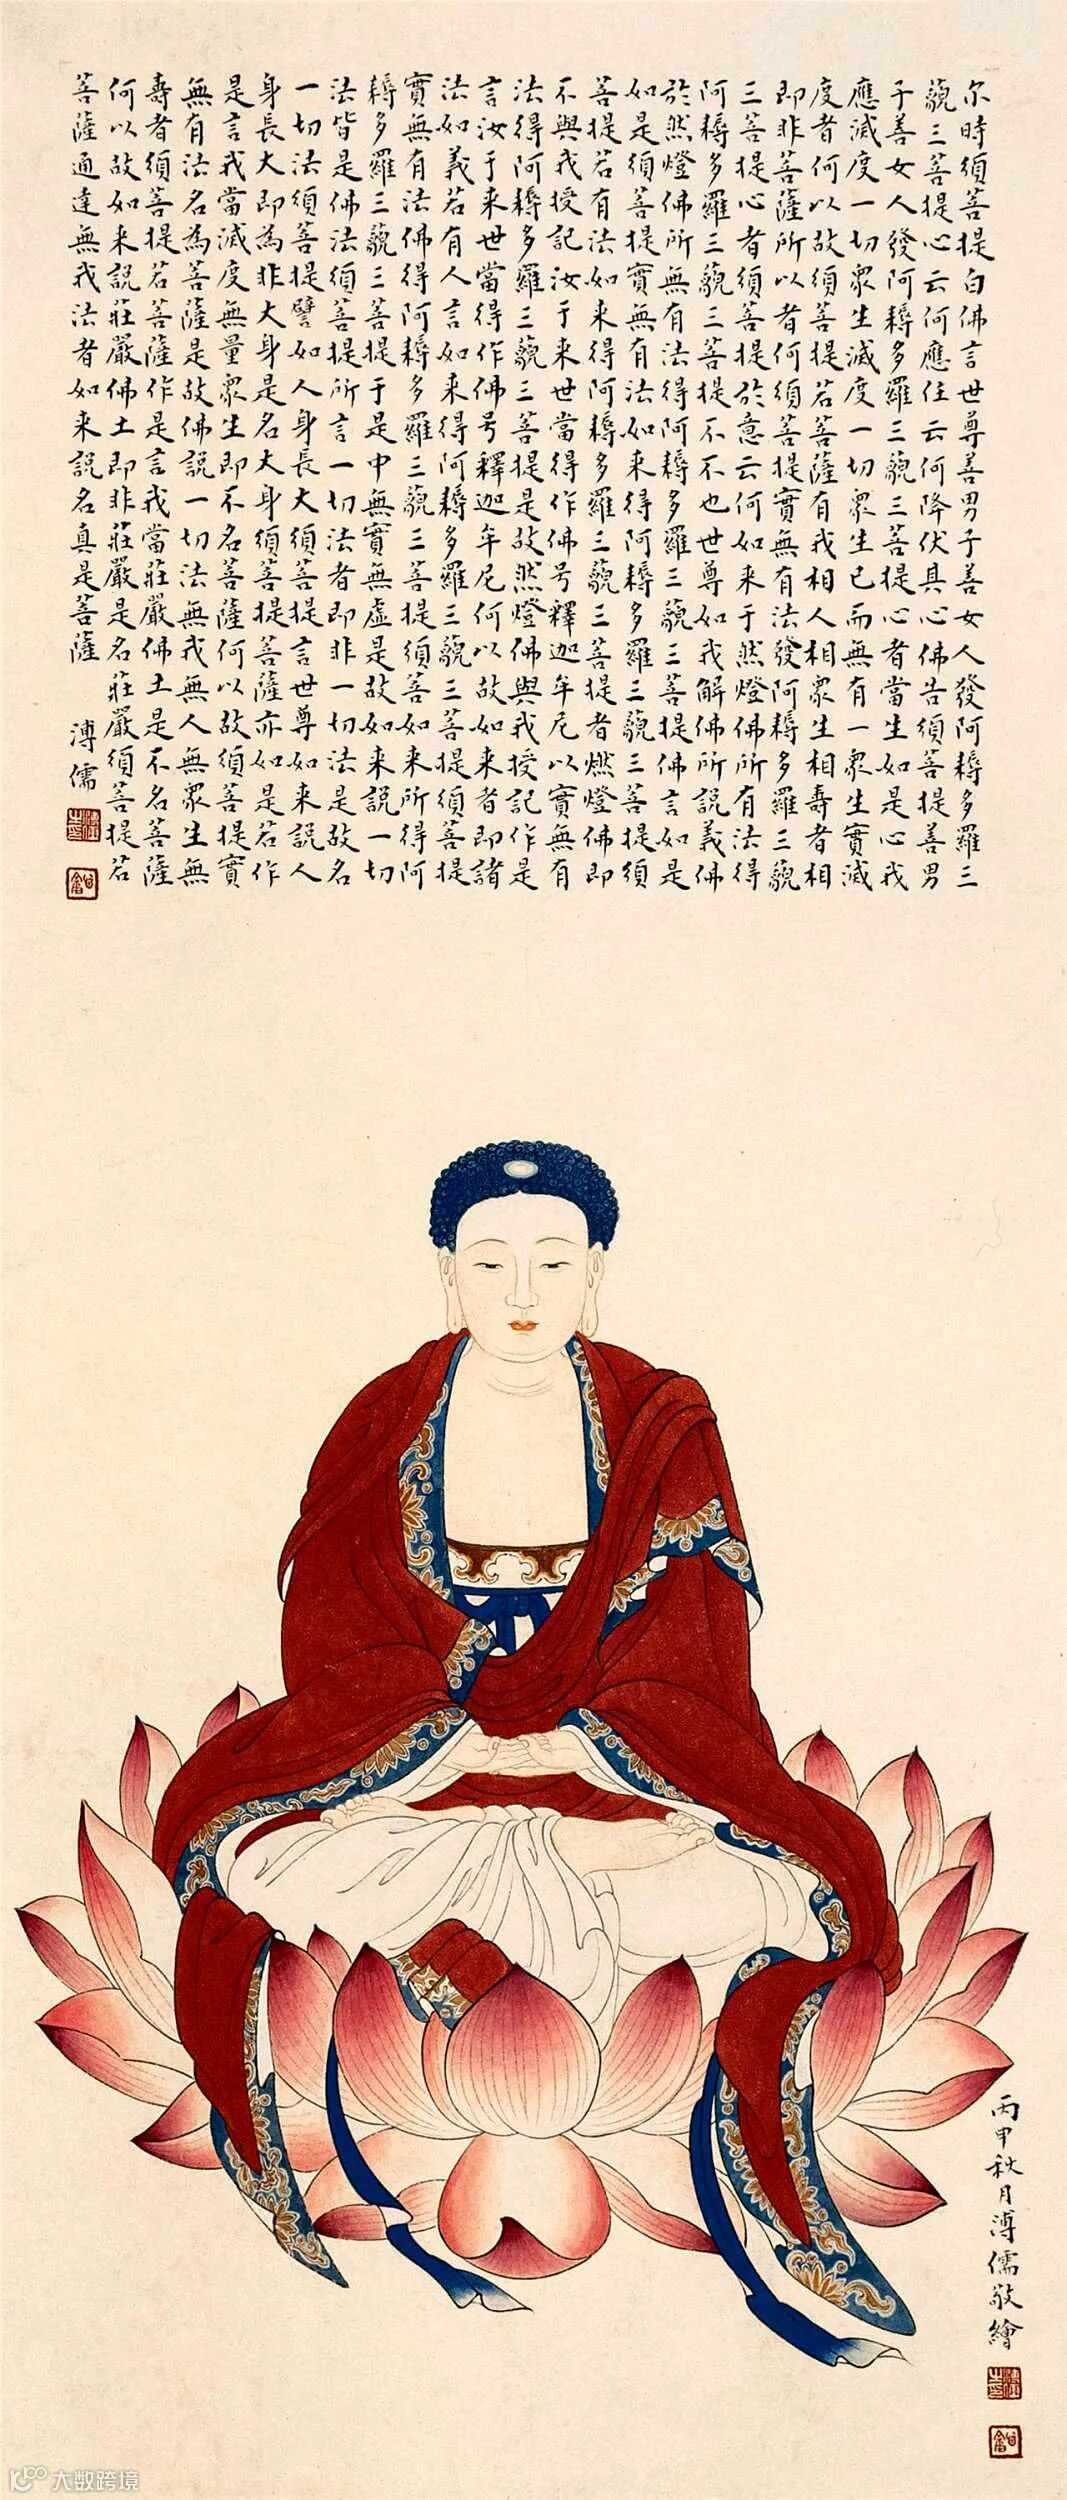 尔時須菩提白佛言世尊善男子善女人發阿耨多羅三
藐三菩提心云何應住云何降伏其心佛告須菩提善男
子善女人發阿耨多羅三藐三菩提心者當生如是心我
應滅度一切眾生滅度一切眾生已而無有一眾生實滅
度者何以故須菩提若菩薩有我相人相眾生相壽者相
即非菩薩所以者何須菩提實無有法發阿耨多羅三藐
三菩提心者須菩提於意云何如来于然燈佛所有法得
阿耨多羅三藐三菩提不不也世尊如我解佛所說義佛
於然燈佛所無有法得阿耨多羅三藐三菩提佛言如是
如是須菩提實無有法如来得阿耨多羅三藐三菩提須
菩提若有法如来得阿耨多羅三藐三菩提者燃燈佛即
不與我授記汝于来世當得作佛号釋迦牟尼以實無有
法得阿耨多羅三藐三菩提是故然燈佛與我授記作是
言汝于来世當得作佛号釋迦牟尼何以故如来者即諸
法如義若有人言如来得阿耨多羅三藐三菩提須菩提
實無有法佛得阿耨多羅三藐三菩提須菩如来所得阿
耨多羅三藐三菩提于是中無實無虛是故如来說一切
法皆是佛法須菩提所言一切法者即非一切法是故名
一切法須菩提譬如人身長大須菩提言世尊如来說人
身長大即為非大身是名大身須菩提菩薩亦如是若作
是言我當滅度無量眾生即不名菩薩何以故須菩提實
無有法名為菩薩是故佛說一切法無我無人無眾生無
壽者須菩提若菩薩作是言我當莊嚴佛土是不名菩薩
何以故如来說莊嚴佛土即非莊嚴是名莊嚴須菩提若
菩薩通達無我法者如来說名真是菩薩 溥儒
丙申秋月溥儒敬繪
大数跨境